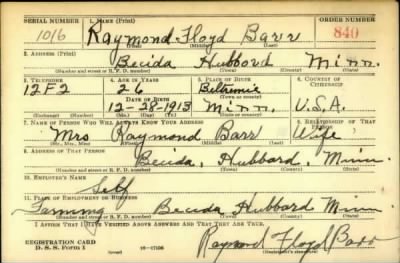 SERIAL NUMBER 1. NAME (Print) ORDER NUMBER
1016 Raymond Floyd Barr 840
(First) (Middle) (Last)
2. ADDRESS (Print)
Becida Hubbard Minn.
(Number and street or R. F. D. number) (Town) (County) (State)
3. TELEPHONE 4. AGE IN YEARS 5. PLACE OF BIRTH 6. COUNTRY OF CITIZENSHIP
12F2 26 Beltramie
DATE OF BIRTH (Town or county)
12-28-1913 Minn. U.S.A.
(Exchange) (Number) (Mo.) (Day) (Yr.) (State or country)
7. NAME OF PERSON WHO WILL ALWAYS KNOW YOUR ADDRESS 8. RELATIONSHIP OF THAT PERSON
Mrs Raymond Barr Wife
(Mr., Mrs., Miss) (First) (Middle) (Last)
9. ADDRESS OF THAT PERSON
Becida, Hubbard, Minn.
(Number and street or R. F. D. number) (Town) (County) (State)
10. EMPLOYER'S NAME
Self
11. PLACE OF EMPLOYMENT OR BUSINESS
Farming Becida Hubbard Minn.
(Number and street or R. F. D. number) (Town) (County) (State)
I AFFIRM THAT I HAVE VERIFIED ABOVE ANSWERS AND THAT THEY ARE TRUE.
REGISTRATION CARD
D. S. S. Form 1 Raymond Floyd Barr
(Registrant's signature)